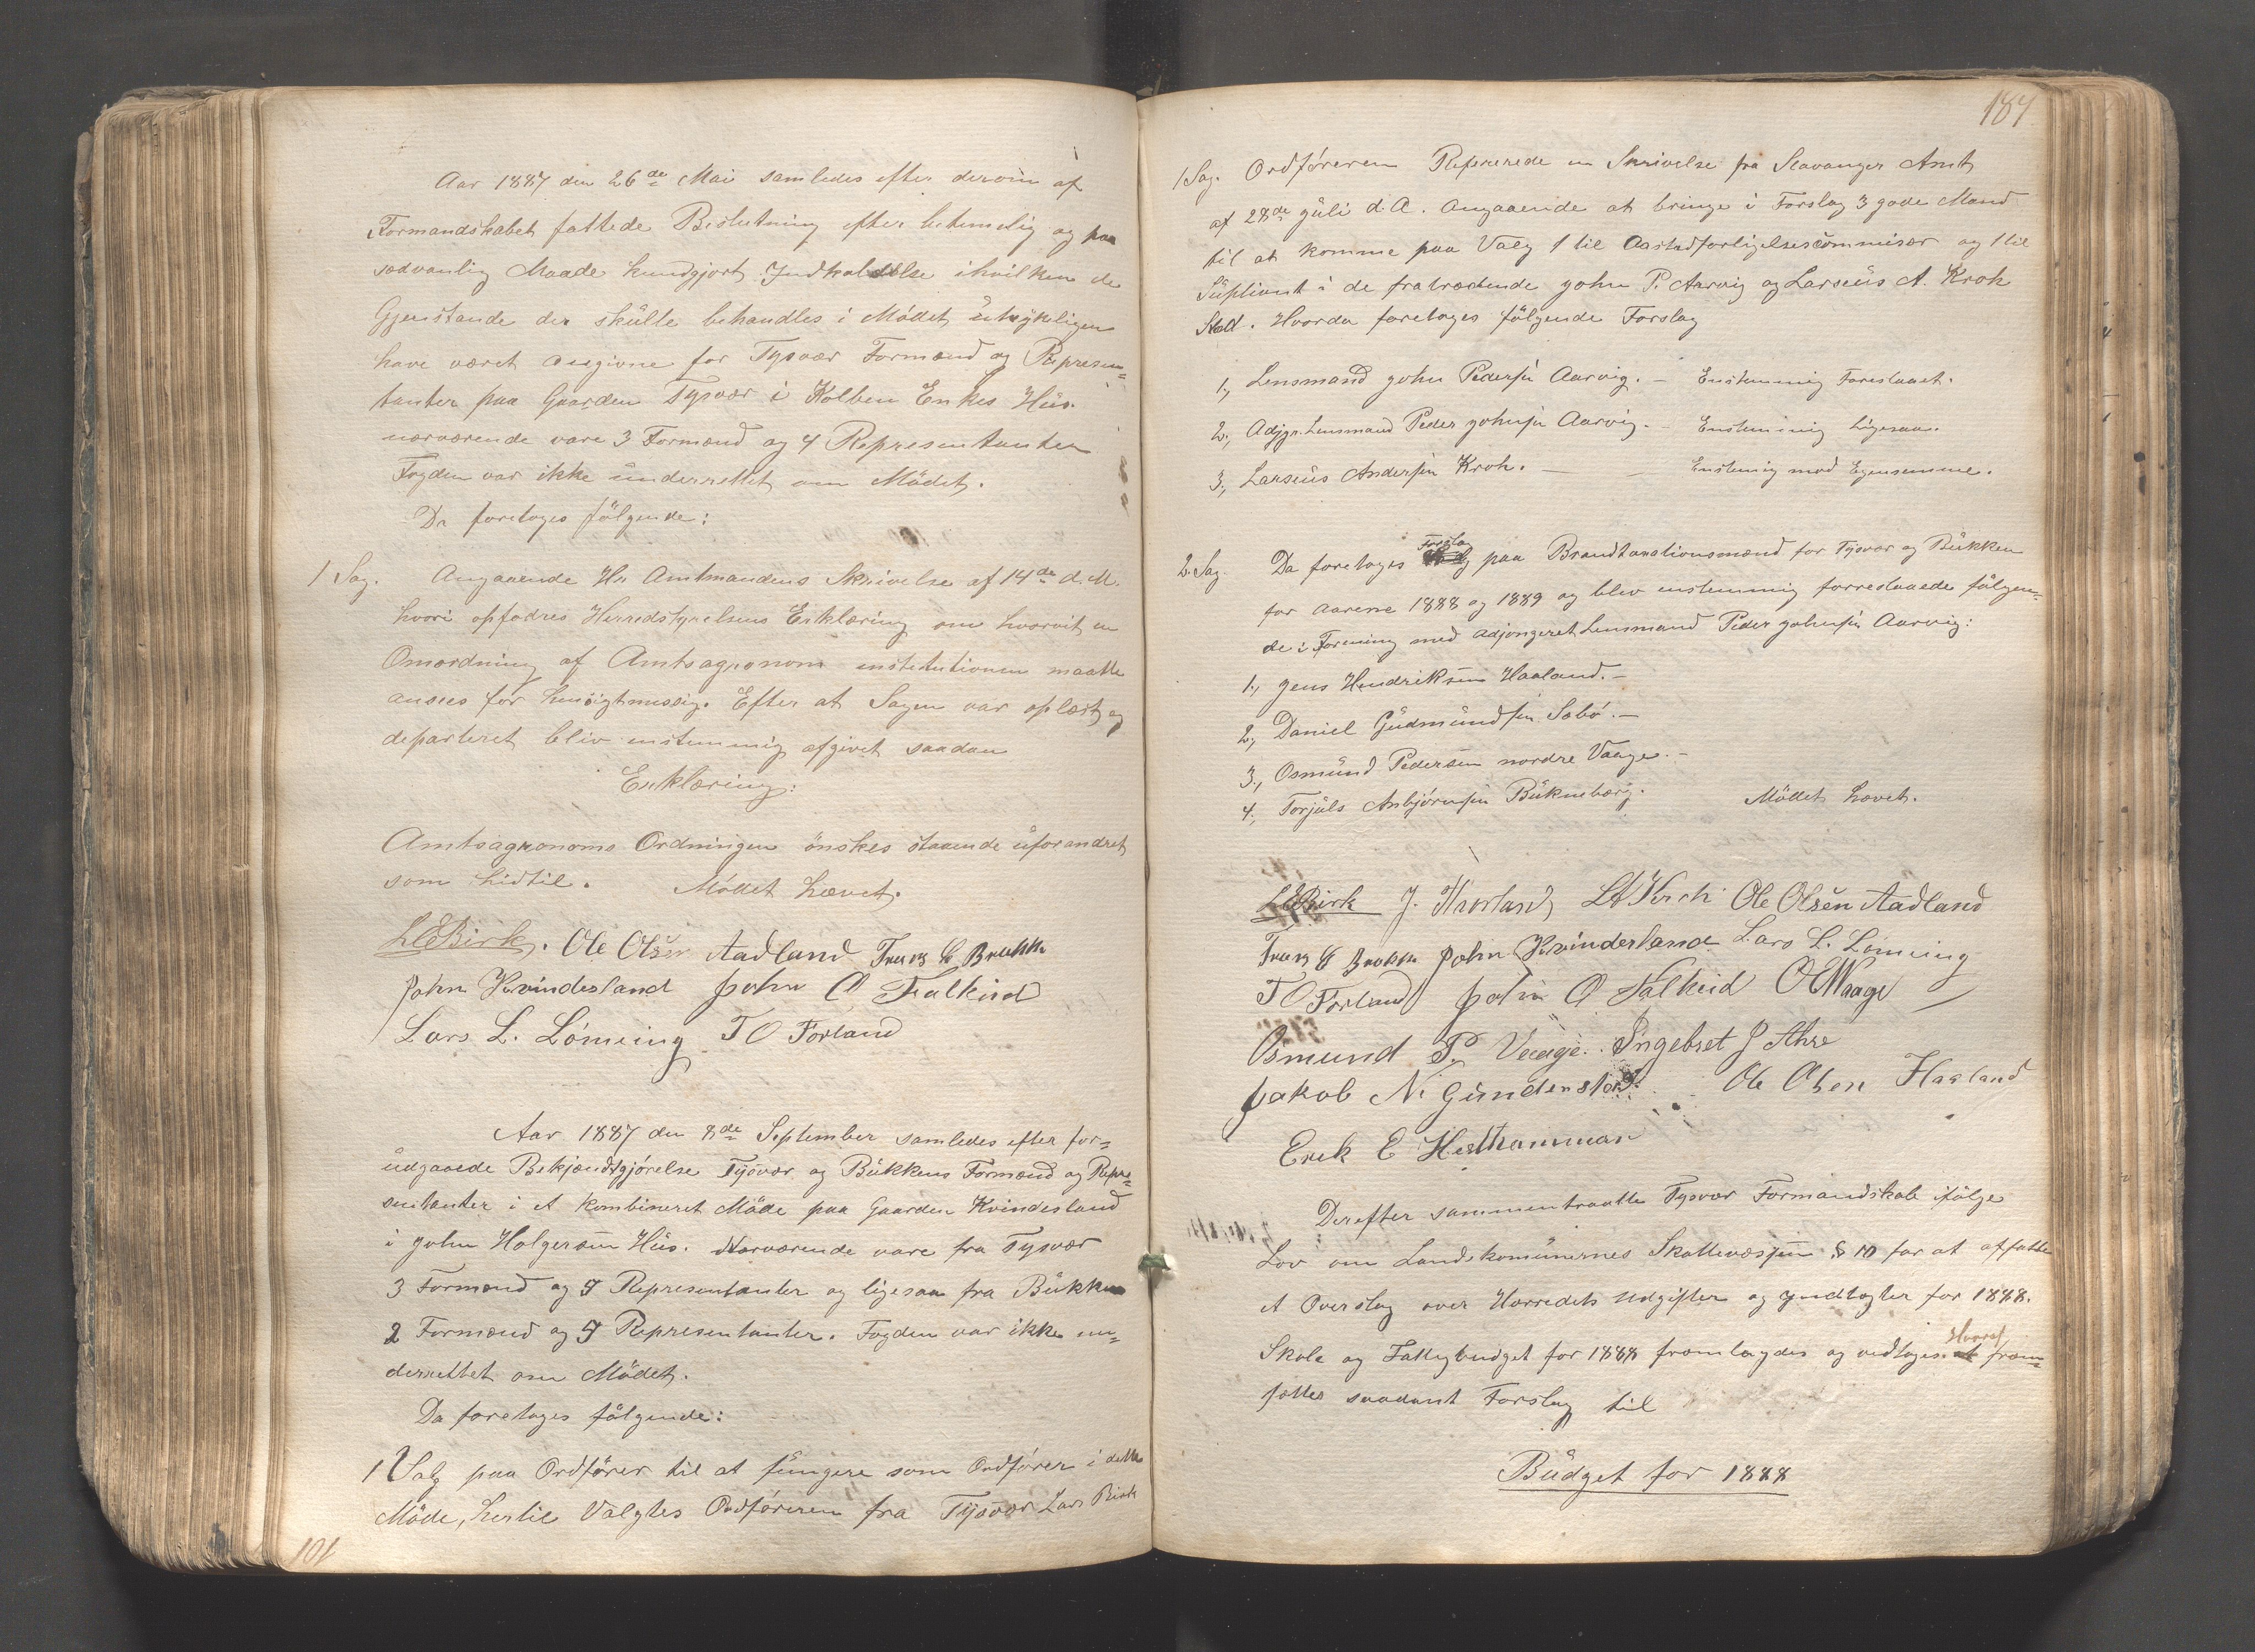 Aar 1887 den 26de Mai samledes efter derom af
Formandskabet fattede Beslutning efter betimelig og paa
sædvanlig Maade kundgjort Indkaldelse ihvilken de
Gjenstande der skulle behandles i Mødet utrykeligen
have været opgivne for Tysvær Formænd og Represen=
tanter paa Gaarden Tysvær i Kolben Enkes Hus.
nærværende vare 3 Formænd og 4 Representanter
Fogden var ikke underrettet om Mødet.
Da foretoges følgende:
1 Sag. Angaaende Hr Amtmandens Skrivelse af 14de d.M.
hvori opfodres Herredstyrelsens Erklæring om hvorvit en
Omordning af Amtsagronom institutionen maatte
ansees for hensigtmessig. Efter at Sagen var oplæst og
departeret blev enstemmig afgivet saadan
Erklæring:
Amtsagronoms Ordningen ønskes staaende uforandret
som hidtil. Mødet hævet.
LEBirk. Ole Olsen Aadland Truls G Brekke
John Kvindesland John O Falkeid
Lars L. Løming T O Førland
Aar 1887 den 8de September samledes efter for=
udgaaede Bekjendtgjørelse Tysvær og Bukkens Formænd og Repre=
sentanter i et kombineret Møde paa Gaarden Kvindesland
i John Holgersen Hus. Nærværende vare fra Tysvær
3 Formænd og 5 Representanter og ligesaa fra Bukken
2 Formænd og 5 Representanter. Fogden var ikke un=
derrettet om Mødet.
Da foretoges følgende:
1 Valg paa Ordfører til at fungere som Ordfører i dette
Møde, hertil Valgtes Ordføreren fra Tysvær Lars Birk
101
187
1 Sag. Ordføreren Refererede en Skrivelse fra Stavanger Amt
af 28de Juli d.A. angaaende at bringe i Forslag 3 gode Mænd
til at komme paa Valg 1 til Aastedforligelsescommisær og 1 til
Supliant i de fratrædende John P. Aarvig og Larseus A. Kroh
Sted. Hvorda foretoges følgende Forslag
1, Lensmand John Pedersen Aarvig. – Enstemmig Foreslaaet.
2, Adjg. Lensmand Peder Johnsen Aarvig. – Enstemmig Ligesaa.
3, Larseus Andersen Kroh. – – Enstemig mod Egenstemme.
2. Sag. Da foretoges Forslag paa Brandtaxationsmænd for Tysvær og Bukken
for Aarene 1888 og 1889 og blev enstemmig forreslaaede følgen=
de i Forening med adjongeret Lensmand Peder Johnsen Aarvig:
1, Jens Hendriksen Haaland. –
2, Daniel Gudmundsen Sæbø. –
3, Osmund Pedersen nordre Vaage. –
4, Torjuls Asbjørnsen Buknebærg. Mødet hævet.
LEBirk J. Ole Olsen Aadland
Truls G Brekke John Kvindesland Lars L. Løming
T O Førland John O Falkeid O Waage
Osmund P. Vaage. Ingebret J Ahre
Jakob N. Gundenstad. Ole Olsen Haaland
Erek E Hesthammar
Derefter sammentraatte Tysvær Formandskab ifølge
Lov om Landskomunernes Skattevæsen § 10 for at affatte
et Overslag over Herredets Udgifter og Indtægter for 1888.
Skole og Fattigbudget for 1888 fremlagdes og vedtoges Hvoraf frem=
sattes saadant Forslag til
Budget for 1888